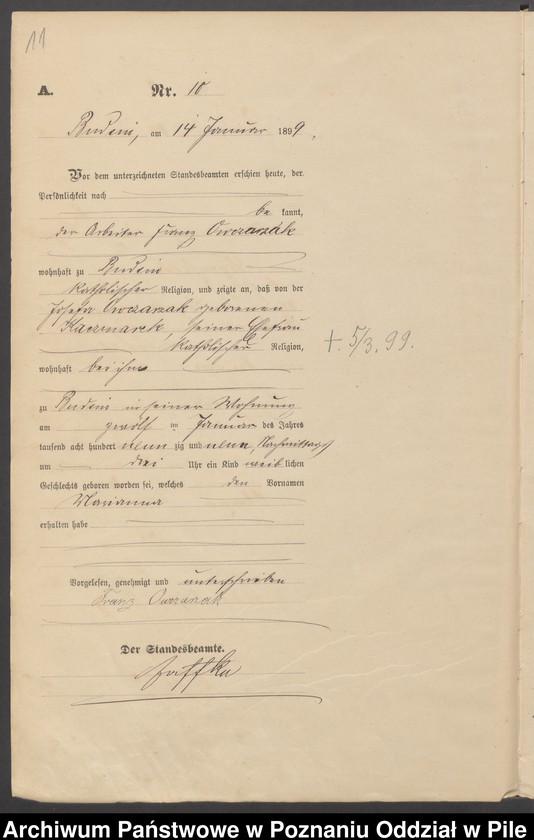 11
A. Nr. 10
am 14 Januar 1899,
Vor dem unterzeichneten Standesbeamten erschien heute, der
Persönlichkeit nach
be kannt,
der Arbeiter Franz Owczarzak
wohnhaft zu
katholischer Religion, und zeigte an, daß von der
Josefa Owczarzak geborenen
Kaczmarek, seiner Ehefrau
katholischer Religion,
+. 5/3. 99.
wohnhaft bei ihm
zu in seiner Wohnung
am zwölf im Januar des Jahres
tausend acht hundert neun zig und neun, Nachmittags
um drei Uhr ein Kind weib lichen
Geschlechts geboren worden sei, welches den Vornamen
Marianna
erhalten habe
Vorgelesen, genehmigt und unterschrieben
Franz Owczarzak
Der Standesbeamte.
Archiwum Państwowe w Poznaniu Oddział w Pile